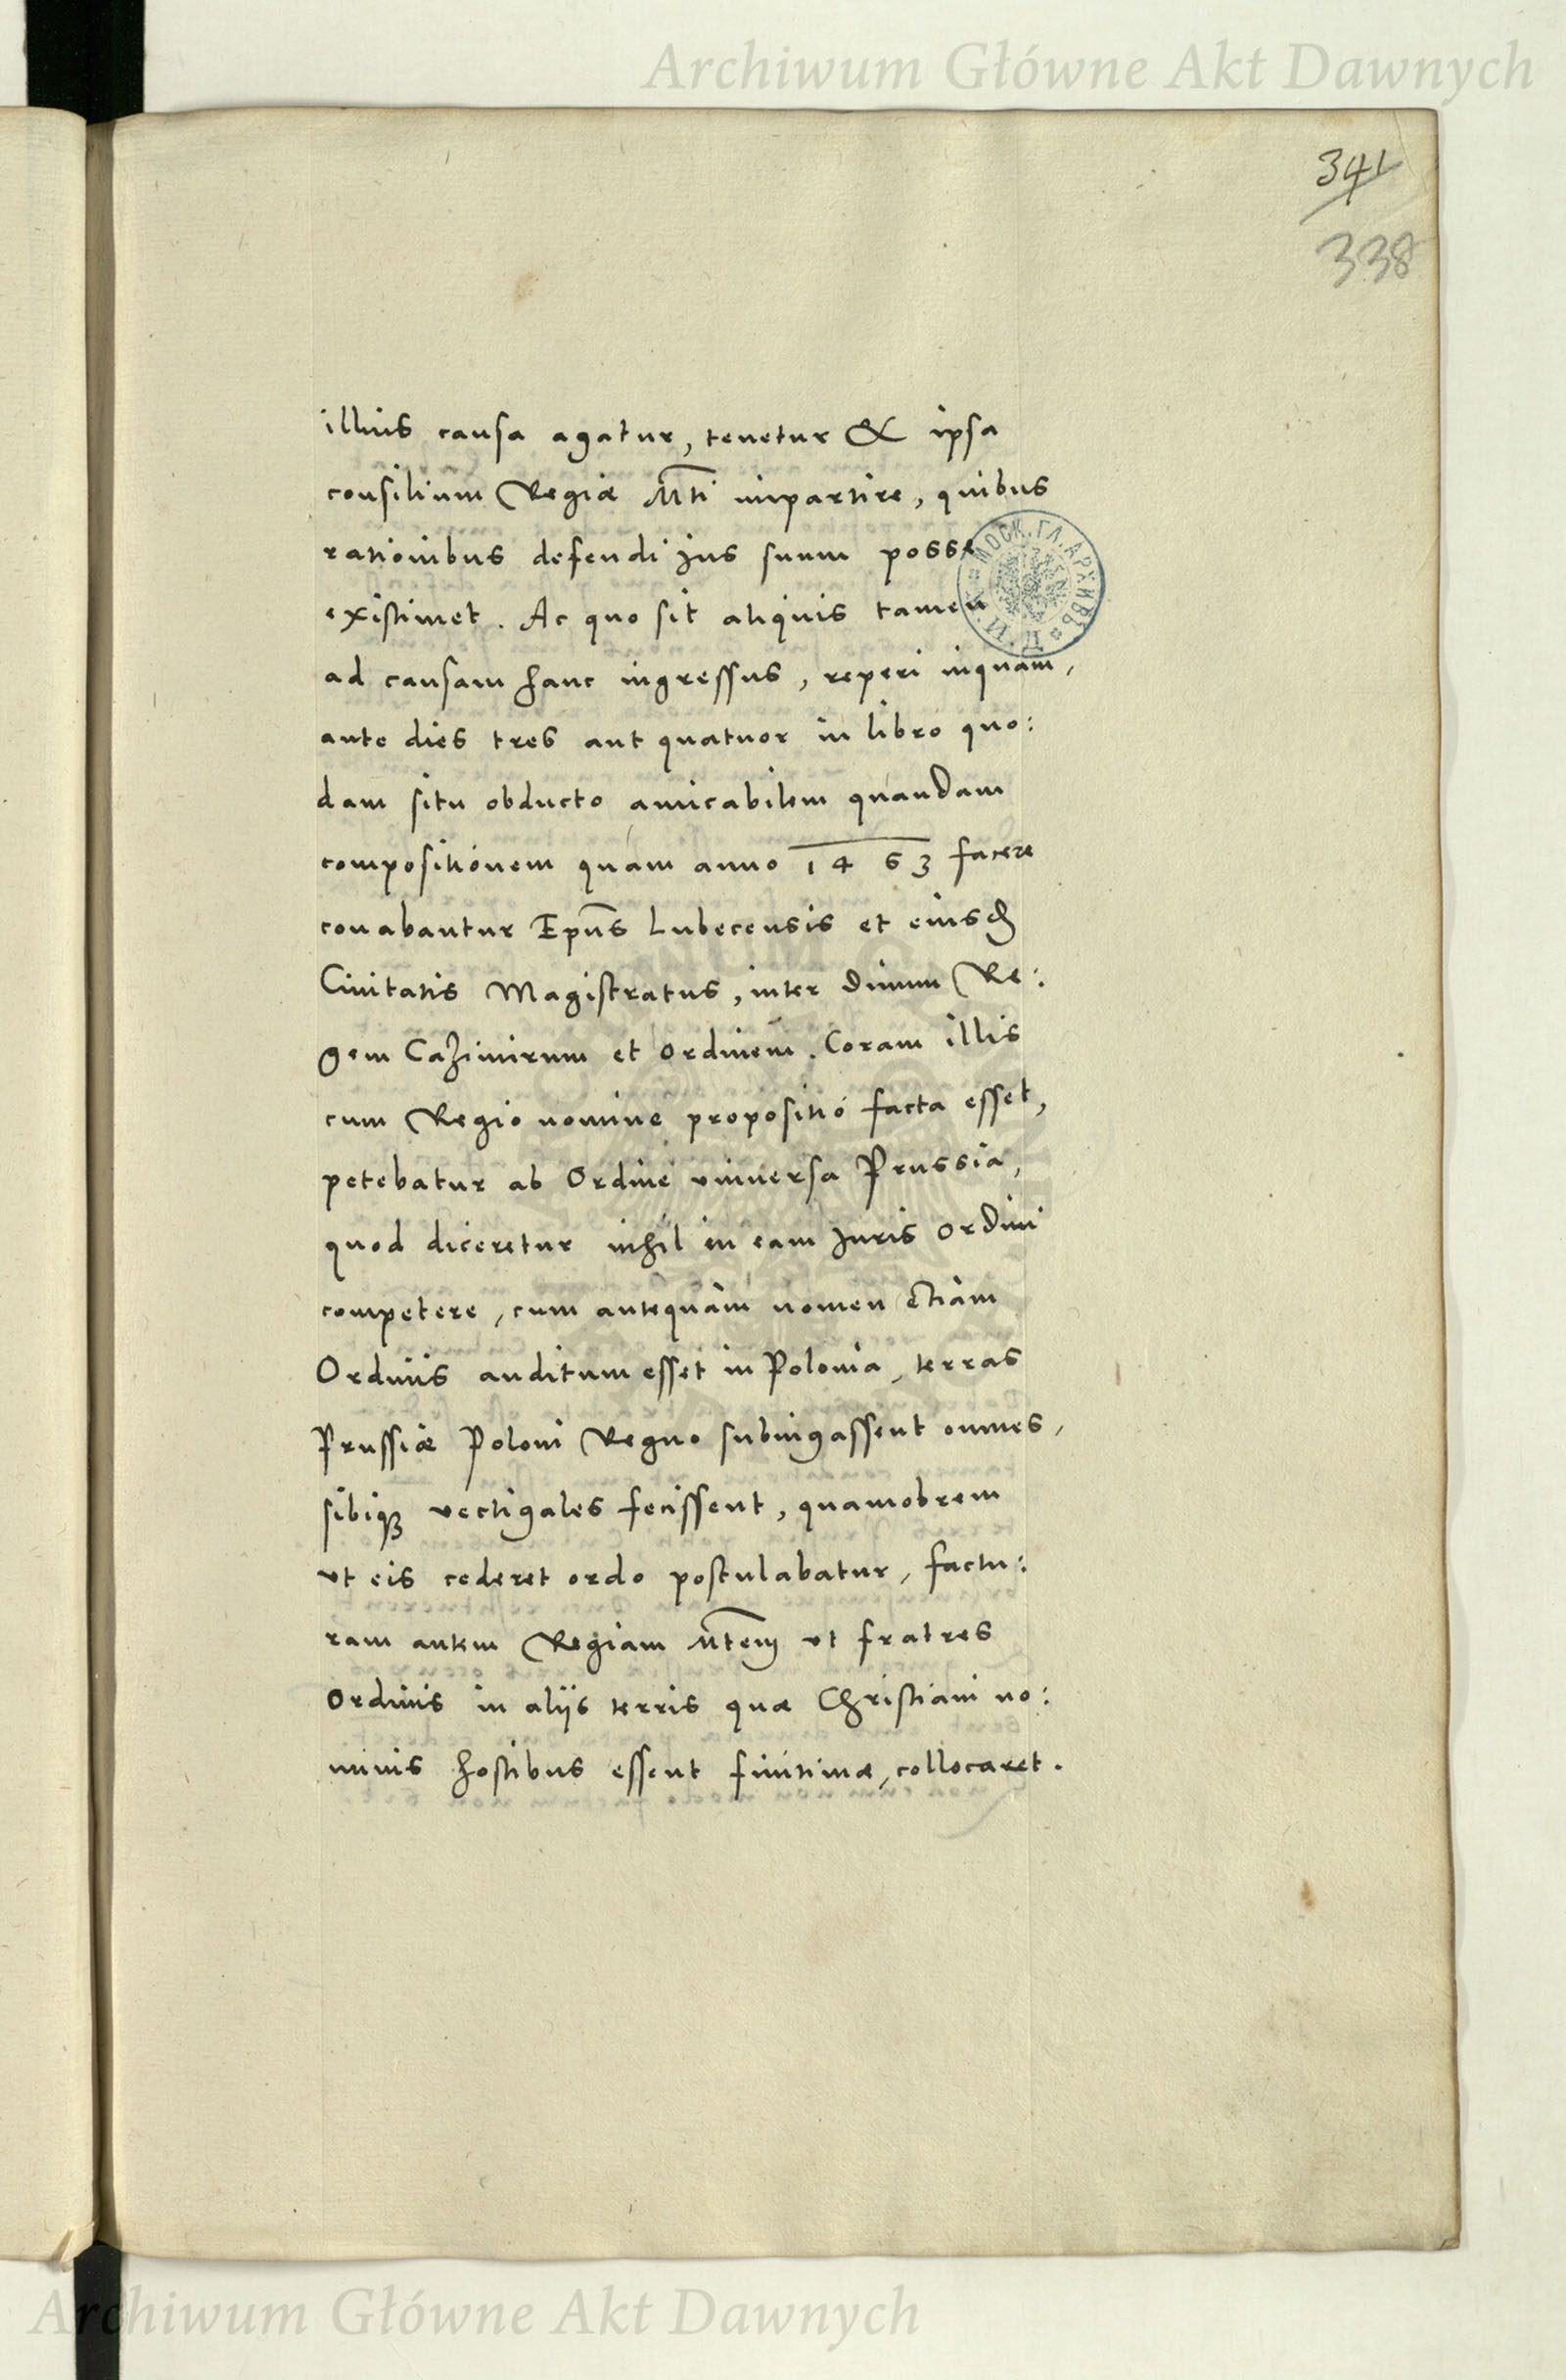 Archiwum Główne Akt Dawnych
341
338
illius causa agatur, tenetur & ipsa
consilium Regiæ Mti impartire, quibus
rationibus defendi jus suum posse
existimet. Ac quo sit aliquis tamen
ad causam hanc ingressus, reperi inquam,
ante dies tres aut quatuor in libro quo:
dam situ obducto amicabilem quandam
compositionem quam anno 1463 facere
conabantur Epus Lubecensis et eiusd
Civitatis Magistratus, inter Divum Re:
gem Cazimirum et Ordinem. Coram illis
cum Regio nomine propositio facta esset,
petebatur ab Ordine universa Prussia,
quod diceretur nihil in eam Juris Ordini
competere, cum antequam nomen etiam
Ordinis auditum esset in Polonia, terras
Prussiæ Poloni Regno subiugassent omnes,
sibiq vectigales fecissent, quamobrem
ut eis cederet ordo postulabatur, factu:
ram autem Regiam Mtem ut fratres
Ordinis in aliis terris quæ Christiani no:
minis hostibus essent finitimæ, collocaret.
МОСК. ГЛ. АРХИВЪ
Archiwum Główne Akt Dawnych